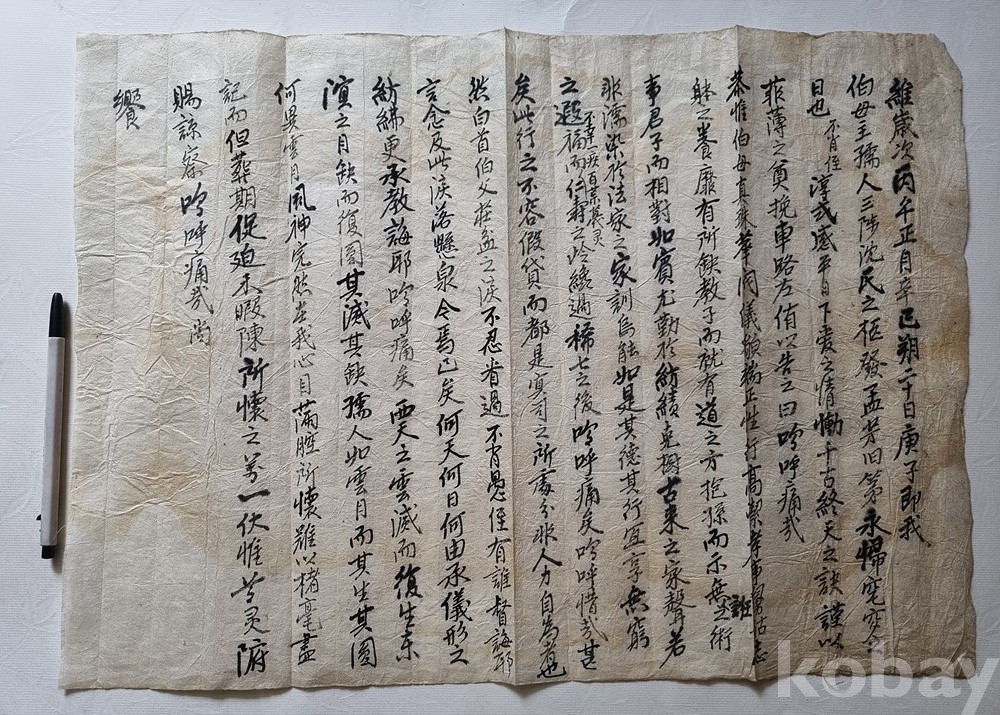 維歲次丙午正月辛巳朔二十日庚子即我
伯母主孺人三陟沈氏之柩發孟芳旧第永歸窀穸之
日也不肖侄淳哀感平日下愛之情慟千古終天之訣謹以
菲薄之奠挽車路左侑以告之曰嗚呼痛哉
恭惟伯母真珠華閥儀貌端正生行高潔孝事舅姑志
躰之養靡有所缺教子而就有道之方抱孫而示無誑術
事君子而相對如賓尤勤於紡績克樹古來之家聲若
非濡染於法家之家訓烏能如是其德其行宜享無窮
之遐福而仁壽之岭纔過稀七之後嗚呼痛矣嗚呼惜哉甚
不幸一疾百藥無灵
矣此行之不容假貸而都是冥司之所處分非人力自為者也
然白首伯父莊盆之淚不忍看過不肖愚侄有誰督誨耶
言念及此淚落懸泉令焉已矣何天何日何由承儀形之
紡綈更承教誨耶嗚呼痛矣西天之雲滅而復生東
溟之月缺而復圓其滅其缺孺人如雲月而其生其圓
何異雲月風神宛然在我心目滿腔所懷難以楮毫盡
記而但葬期促迫未暇陳所懷之萬一伏惟尊灵俯
賜諒察嗚呼痛哉尚
饗
kobay